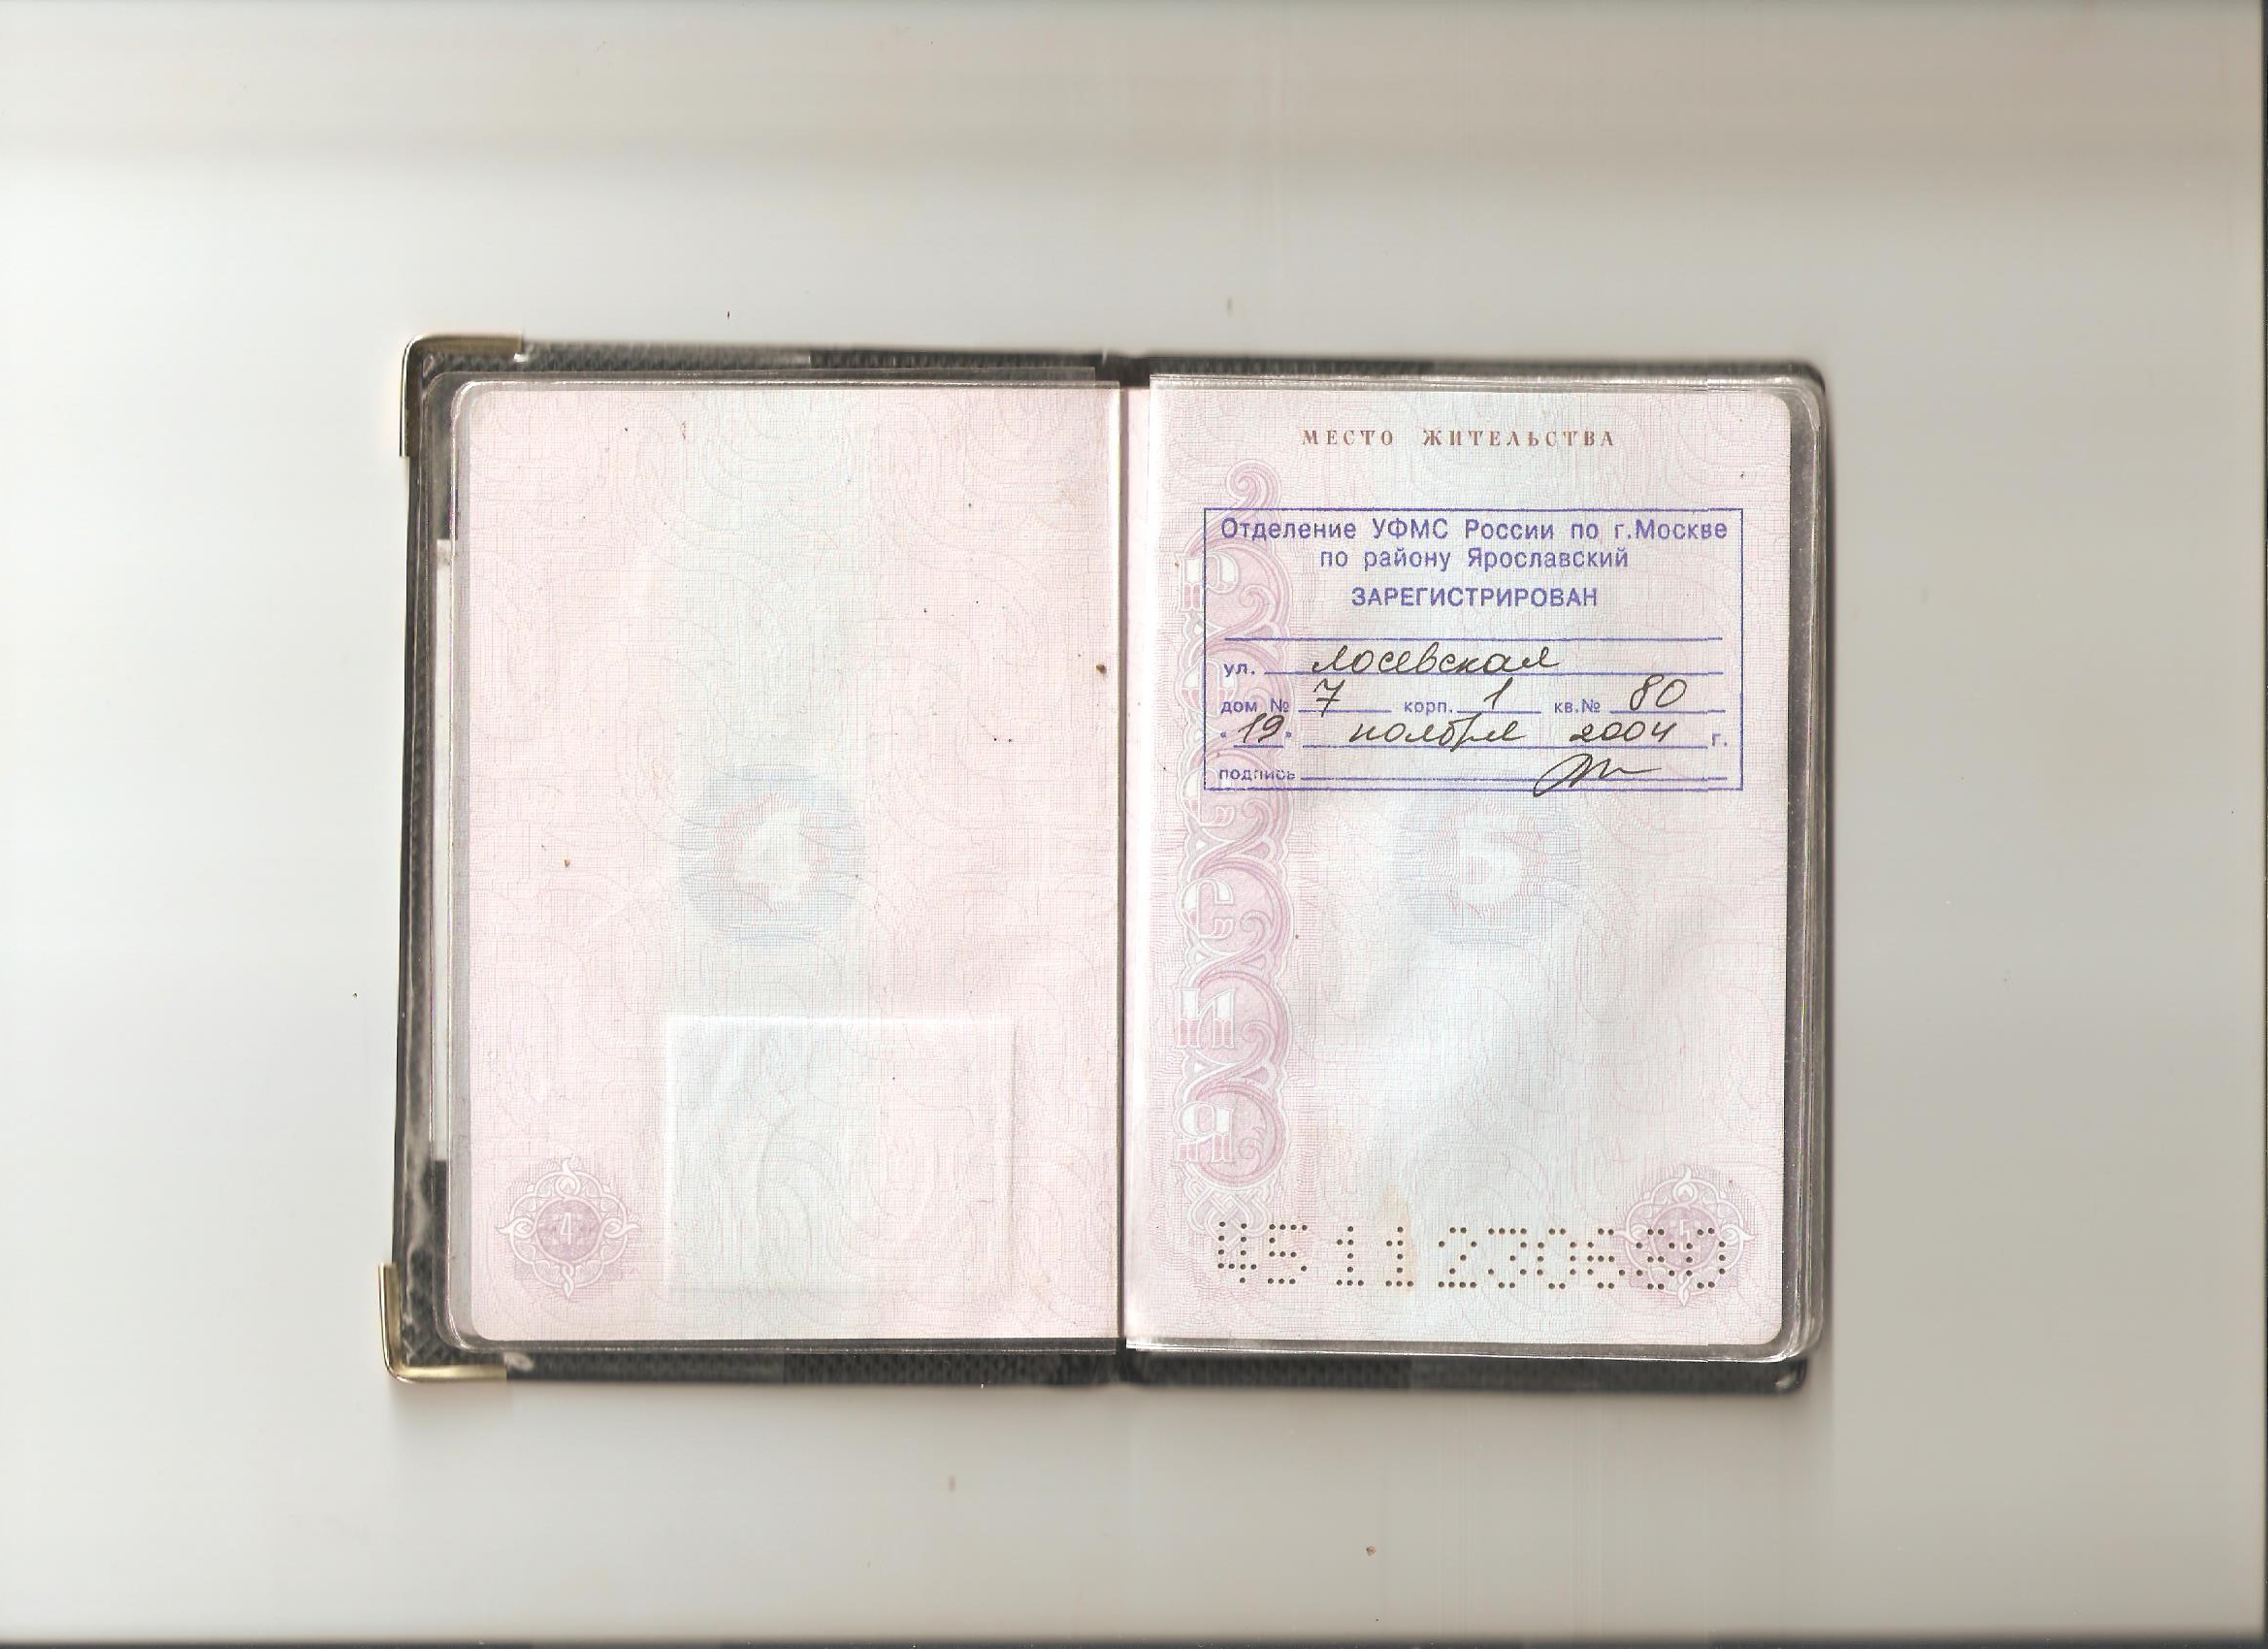 4
4
МЕСТО ЖИТЕЛЬСТВА
Отделение УФМС России по г.Москве
по району Ярославский
ЗАРЕГИСТРИРОВАН
ул. Лосевская
дом № 7 корп. 1 кв.№ 80
"19" ноября 2004 г.
подпись
РОССИЯ
5
5
45 11